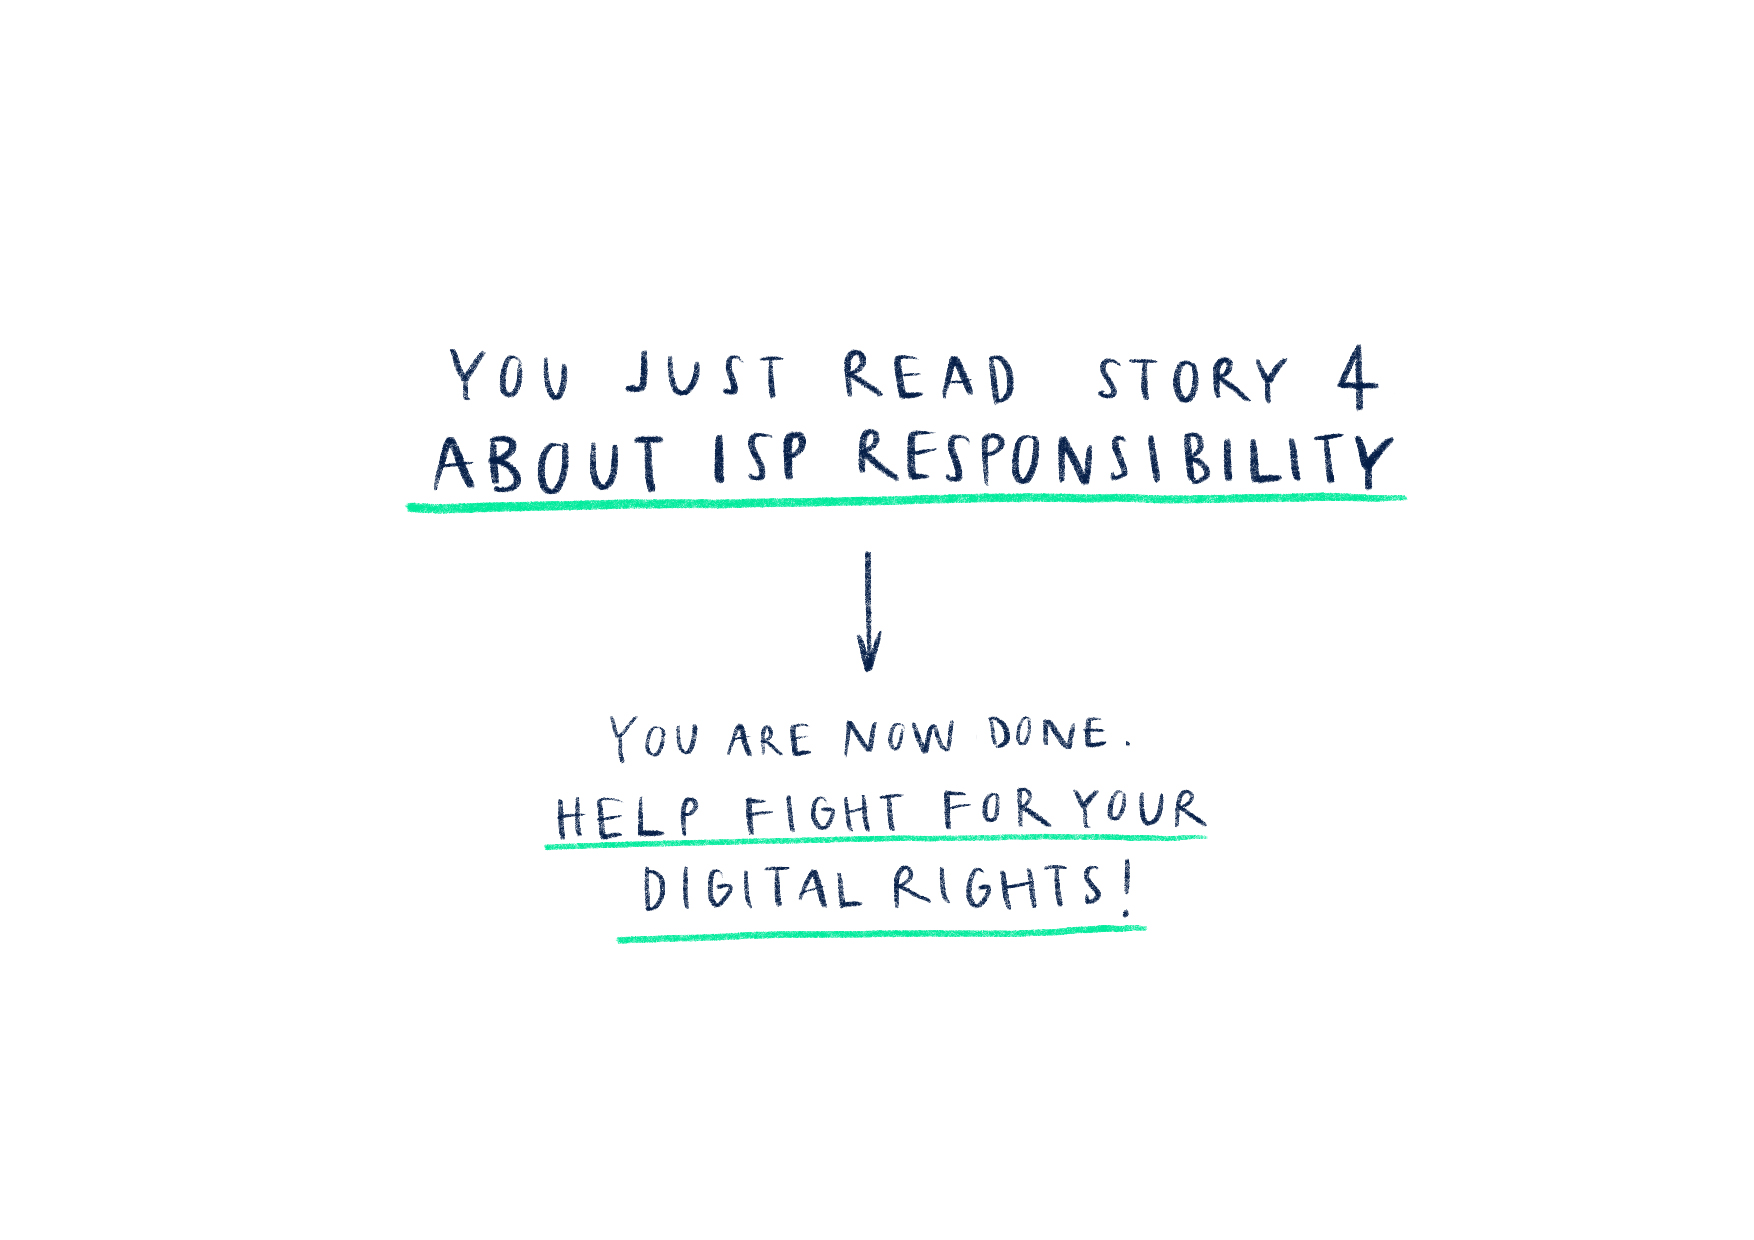 YOU JUST READ STORY 4
ABOUT ISP RESPONSIBILITY
YOU ARE NOW DONE.
HELP FIGHT FOR YOUR
DIGITAL RIGHTS!